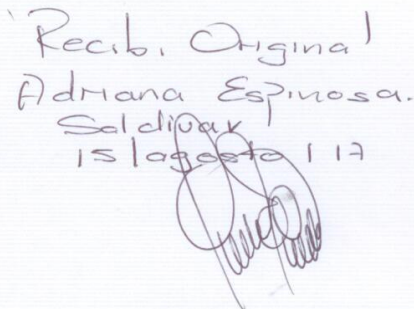 Recibi Original
Adriana Espinosa.
Saldivar
15/agosto/17